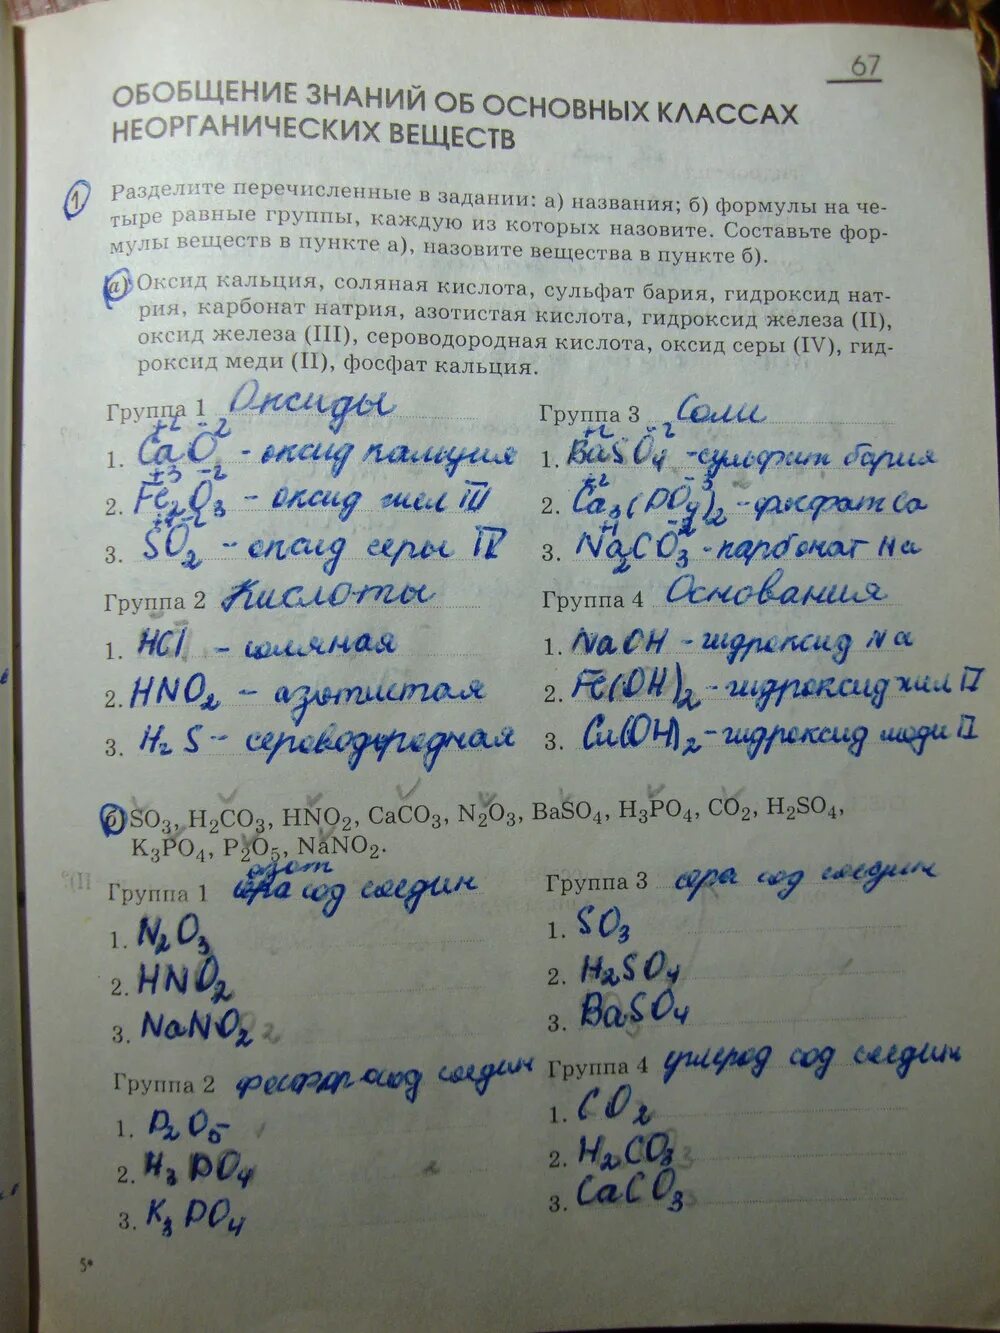 67
ОБОБЩЕНИЕ ЗНАНИЙ ОБ ОСНОВНЫХ КЛАССАХ
НЕОРГАНИЧЕСКИХ ВЕЩЕСТВ
1 Разделите перечисленные в задании: а) названия; б) формулы на че-
тыре равные группы, каждую из которых назовите. Составьте фор-
мулы веществ в пункте а), назовите вещества в пункте б).
а) Оксид кальция, соляная кислота, сульфат бария, гидроксид нат-
рия, карбонат натрия, азотистая кислота, гидроксид железа (II),
оксид железа (III), сероводородная кислота, оксид серы (IV), гид-
роксид меди (II), фосфат кальция.
Группа 1 Оксиды
+2 -2
1. CaO - оксид кальция
+3 -2
2. Fe2O3 - оксид жел III
+4 -2
3. SO2 - оксид серы IV
Группа 2 Кислоты
1. HCl - соляная
2. HNO2 - азотистая
3. H2S - сероводородная
Группа 3 Соли
+2 -2
1. BaSO4 - сульфат бария
+2 -3
2. Ca3(PO4)2 - фосфат Ca
+1 -2
3. Na2CO3 - карбонат Na
Группа 4 Основания
1. NaOH - гидроксид Na
2. Fe(OH)2 - гидроксид жел II
3. Cu(OH)2 - гидроксид меди II
б) SO3, H2CO3, HNO2, CaCO3, N2O3, BaSO4, H3PO4, CO2, H2SO4,
K3PO4, P2O5, NaNO2.
Группа 1 азот сод соедин
1. N2O3
2. HNO2
3. NaNO2
Группа 2 фосфор сод соедин
1. P2O5
2. H3PO4
3. K3PO4
Группа 3 сера сод соедин
1. SO3
2. H2SO4
3. BaSO4
Группа 4 углерод сод соедин
1. CO2
2. H2CO3
3. CaCO3
5*